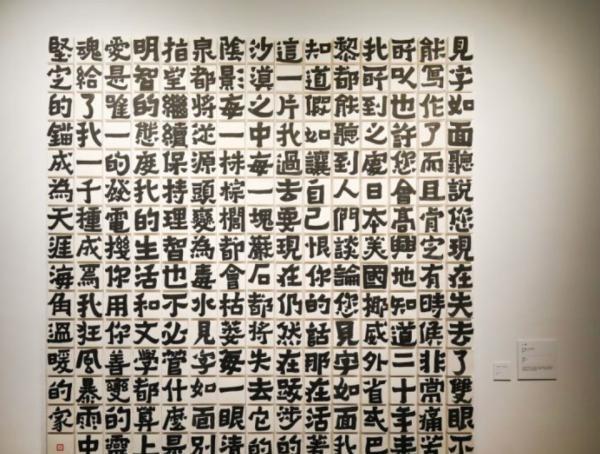 見字如面聽說您現在失去了雙眼不
能寫作了而且肯定有時候非常痛苦
所以也許您會高興地知道二十年來
我所到之處日本美國挪威外省或巴
黎都能聽到人們談論您見字如面我
知道假如讓自己恨你的話那在活著
這一片我過去要現在仍然在跋涉的
沙漠之中每一塊蘚石都將失去它的
陰影每一株棕櫚都會枯萎每一眼清
泉都將從源頭變為毒水見字如面別
指望繼續保持理智也不必管什麼是
明智的態度我的生活和文學都算上
愛是唯一的發電機你用你善變的靈
魂給了我一千種成為我狂風暴雨中
堅定的錨成為天涯海角溫暖的家